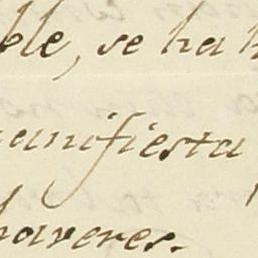 ble, se ha h
anifiesta
haveres.